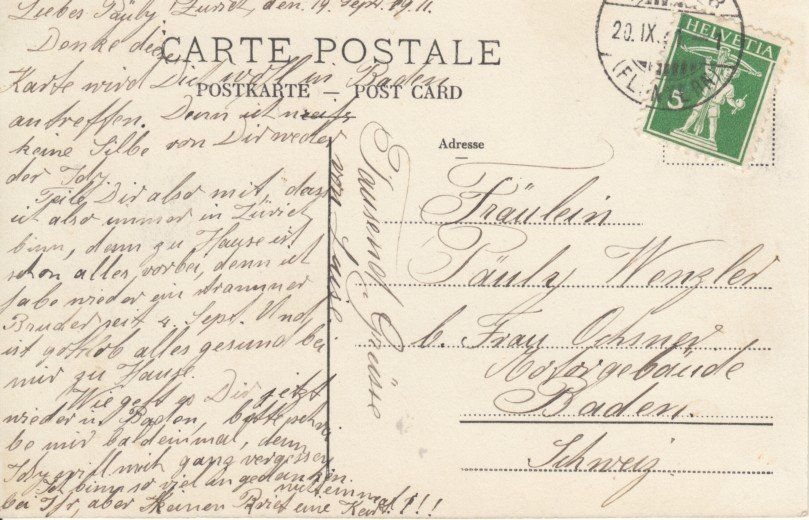 Liebes Päuly, Zürich, den 19. Sept. 1911.
Denke diese
CARTE POSTALE
Karte wird Dich wohl in Baden
POSTKARTE — POST CARD
antreffen. Denn ich
keine Silbe von Dir weder
der Idy.
Teile Dir also mit, dass
ich also immer in Zürich
binn, denn zu Hause ist
schon alles vorbei, denn ich
habe wieder ein strammer
Bruder seit 4. Sept. Und
ist gottlob alles gesund bei
mir zu Hause.
Wie geht es Dir, jetzt
wieder in Baden, bitte schrei
be mir bald einmal, denn
Idy will mich ganz vergessen
Ich binn so viel in gedanken
bei Ihr, aber keinen Brief nicht einmal eine Kart!!!
Tausend Grüsse
von Luise.
Adresse
Fräulein
Päuly Wenzler
b. Frau Ochsner
Motorgebäude
Baden.
Schweiz
20. IX.
HELVETIA
5